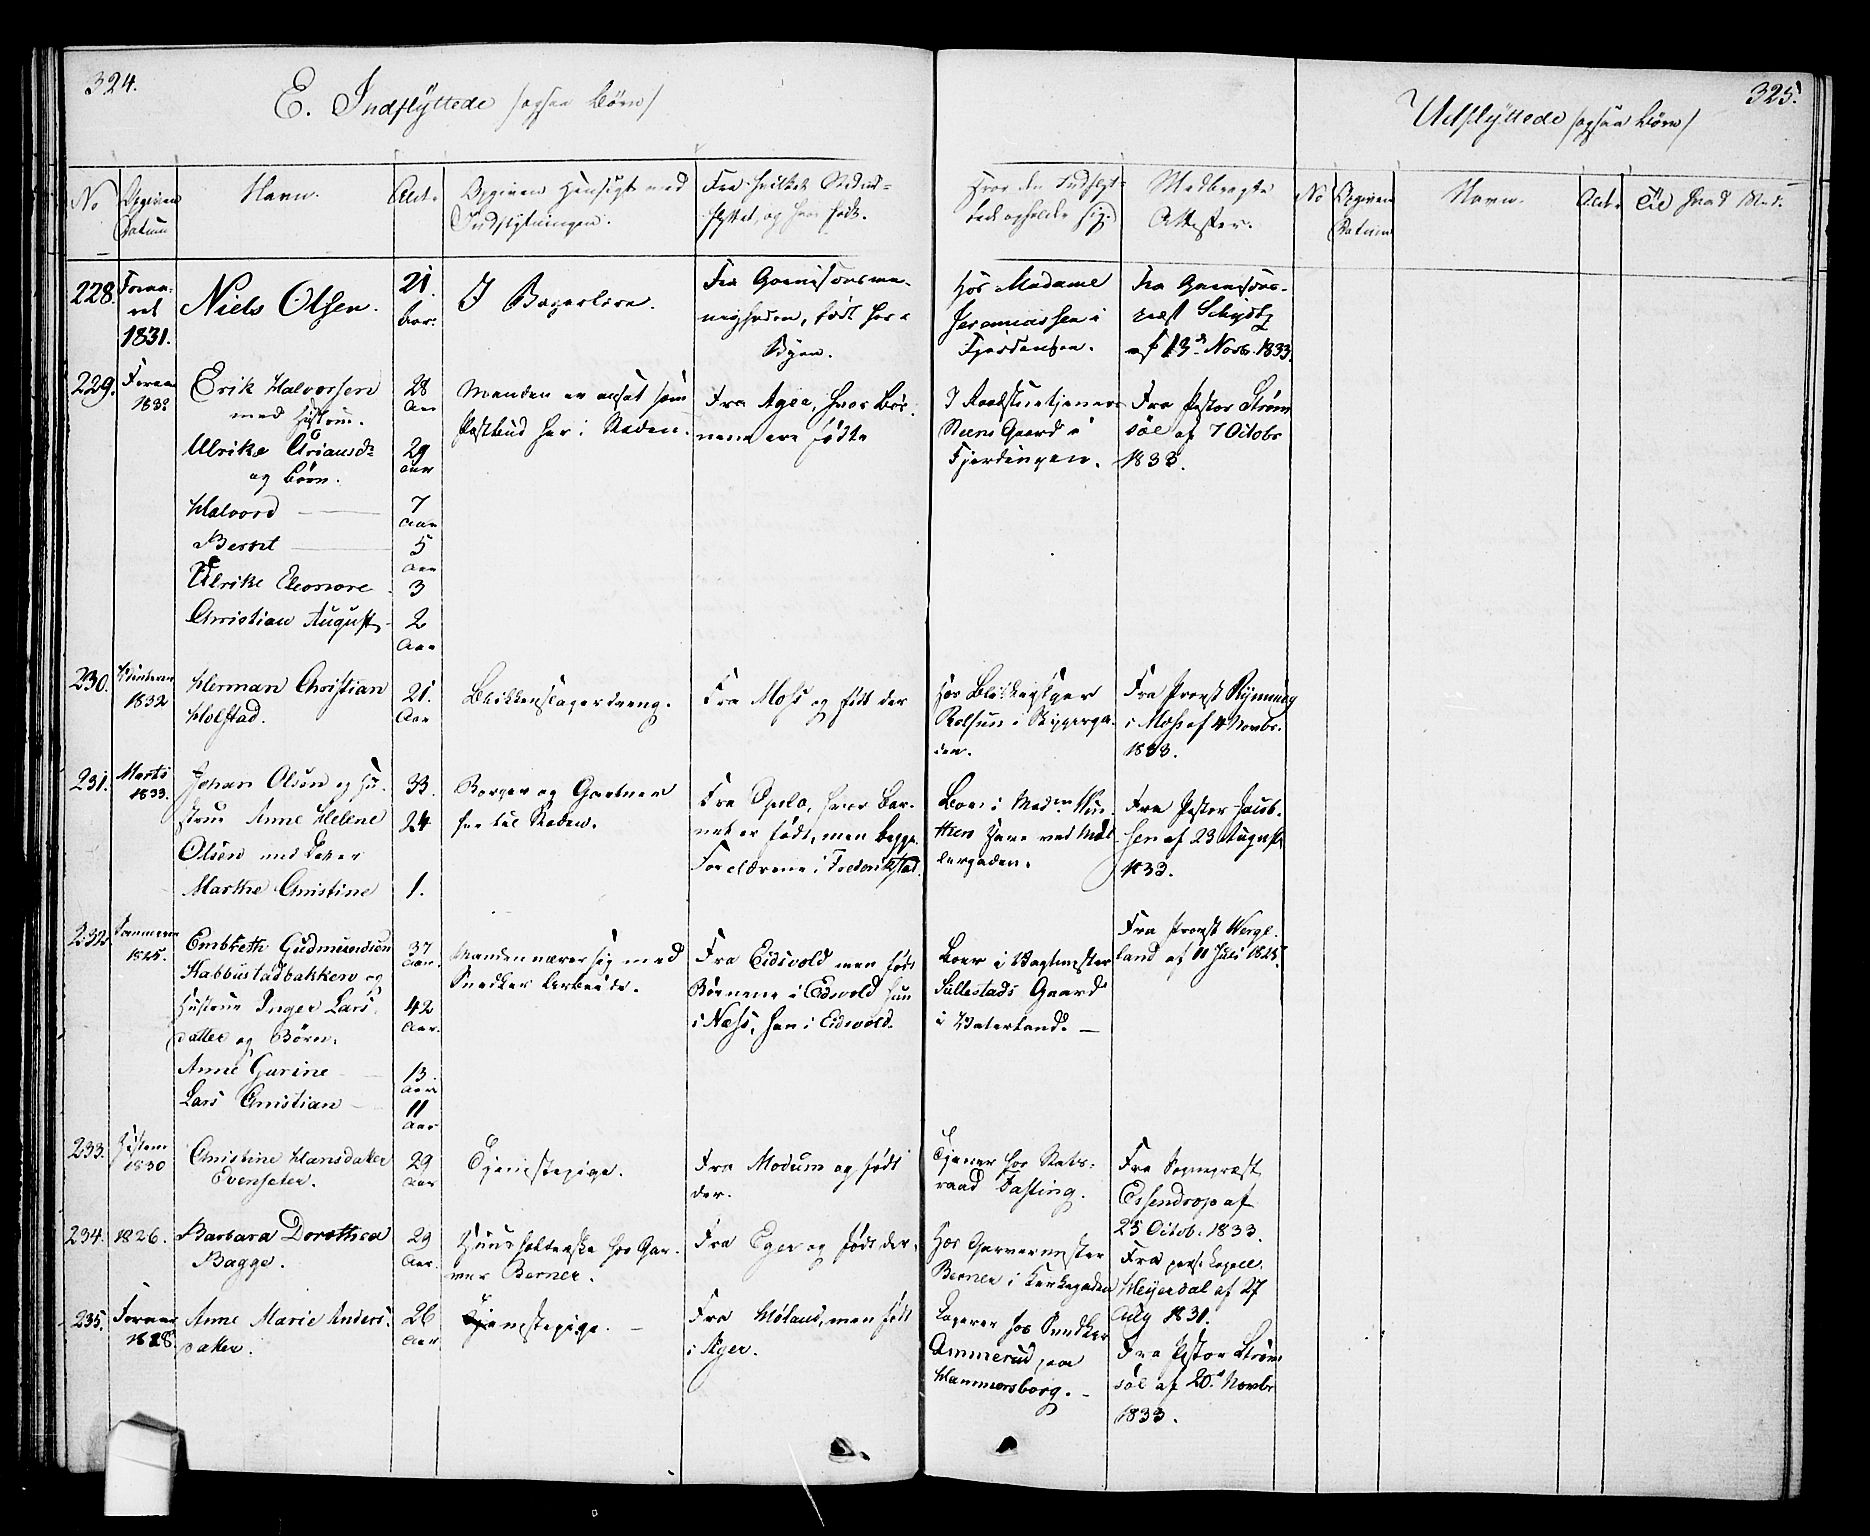 324.
E. Indflyttede /ogsaa Børn/
No
Opgiven Datum
Navn.
Alder
Opgiven Hensigt med Indflytningen.
Fra hvilket Sted indflyttet, og hvor født.
Hvor den Indflyttede opholder sig.
Medbragte Attester.
325.
Udflyttede /ogsaa Børn/
No
Opgiven Datum
Navn.
Ald.
Til hvad Sted.
228.
Foraaret
1831.
Niels Olsen.
21.
Aar.
I Bagerlære.
Fra Garnisonsmenigheden, født her i
Byen.
Hos Madame
Jeremiassen i
Fjerdingen.
Fra Garnisonspræst Schydtz
af 13de Novb. 1833.
229.
Foraar
1833
Erik Halvorsen
med Hustrue.
Ulrike Ariansd.
og Børn.
Halvord
Bernt
Ulrike Eleonore
Christian August
28
Aar
29
Aar
7
Aar
5
Aar
3
2
Aar
Manden er ansat som
Postbud her i Staden.
Fra Ager, hvor Børnene ere fødte
I Raadstuetjener
Steens Gaard i
Fjerdingen.
Fra Pastor Strøm
søe af 7 Octobr
1833.
230.
Vinteren
1832
Herman Christian
Holstad.
21.
Aar
Blikkenslagerdreng.
Fra Moss og født der
Hos Blikkenslager
Rolfsen i Skippergaden.
Fra Provst Rynning
i Moss af 4 Novbr.
1833.
231.
Marts
1833.
Johan Olsen og Hustrue Anne Helene
Olsen med Datter
Marthe Christine
33.
24
1.
Borger og Gartner
her til Staden.
Fra Opslo, hvor Barnet er født, men begge
Forældrene i Frederikstad.
Boer i Madm.
Møllergaden.
Fra Pastor Jacobsen af 23 August
1833.
232
Sommeren
1825.
Embreth Gudmundsen
Habbustadbakken og
Hustrue Inger Larsdatter og Børn.
Anne Gurine
Lars Christian
37
Aar.
42
Aar.
13.
Aar
11
Aar
Manden nærer sig med
Snedker Arbeide.
Fra Eidsvold men født
Børnene i Eidsvold hun
i Næss, han i Eidsvold.
Boer i Vagtmester
Sullestads Gaard
i Vaterland. —
Fra Provst Wergeland af 11 Juli 1825.
233.
Høsten
1830
Christine Hansdatter
Evenseter.
29
Aar
Tjenestepige.
Fra Modum og født
der.
Tjener hos Statsraad Fasting.
Fra Sognepræst
Essendrop af
25 Octob. 1833.
234.
1826.
Barbara Dorothea
Bagge.
29
Aar.
Huusholderske hos Garver Berner.
Fra Eger og født der.
Hos Garvermester
Berner i Kirkegaden
Fra pers. Capell.
Heyerdal af 27
Aug 1831.
235.
Foraar
1828.
Anne Marie Andersdatter.
26
Aar
Tjenestepige. —
Fra Høland, men født
i Ager.
Logerer hos Snedker
Ammerud paa
Hammersborg. —
Fra Pastor Strøm
søe af 20de Novbr
1833.